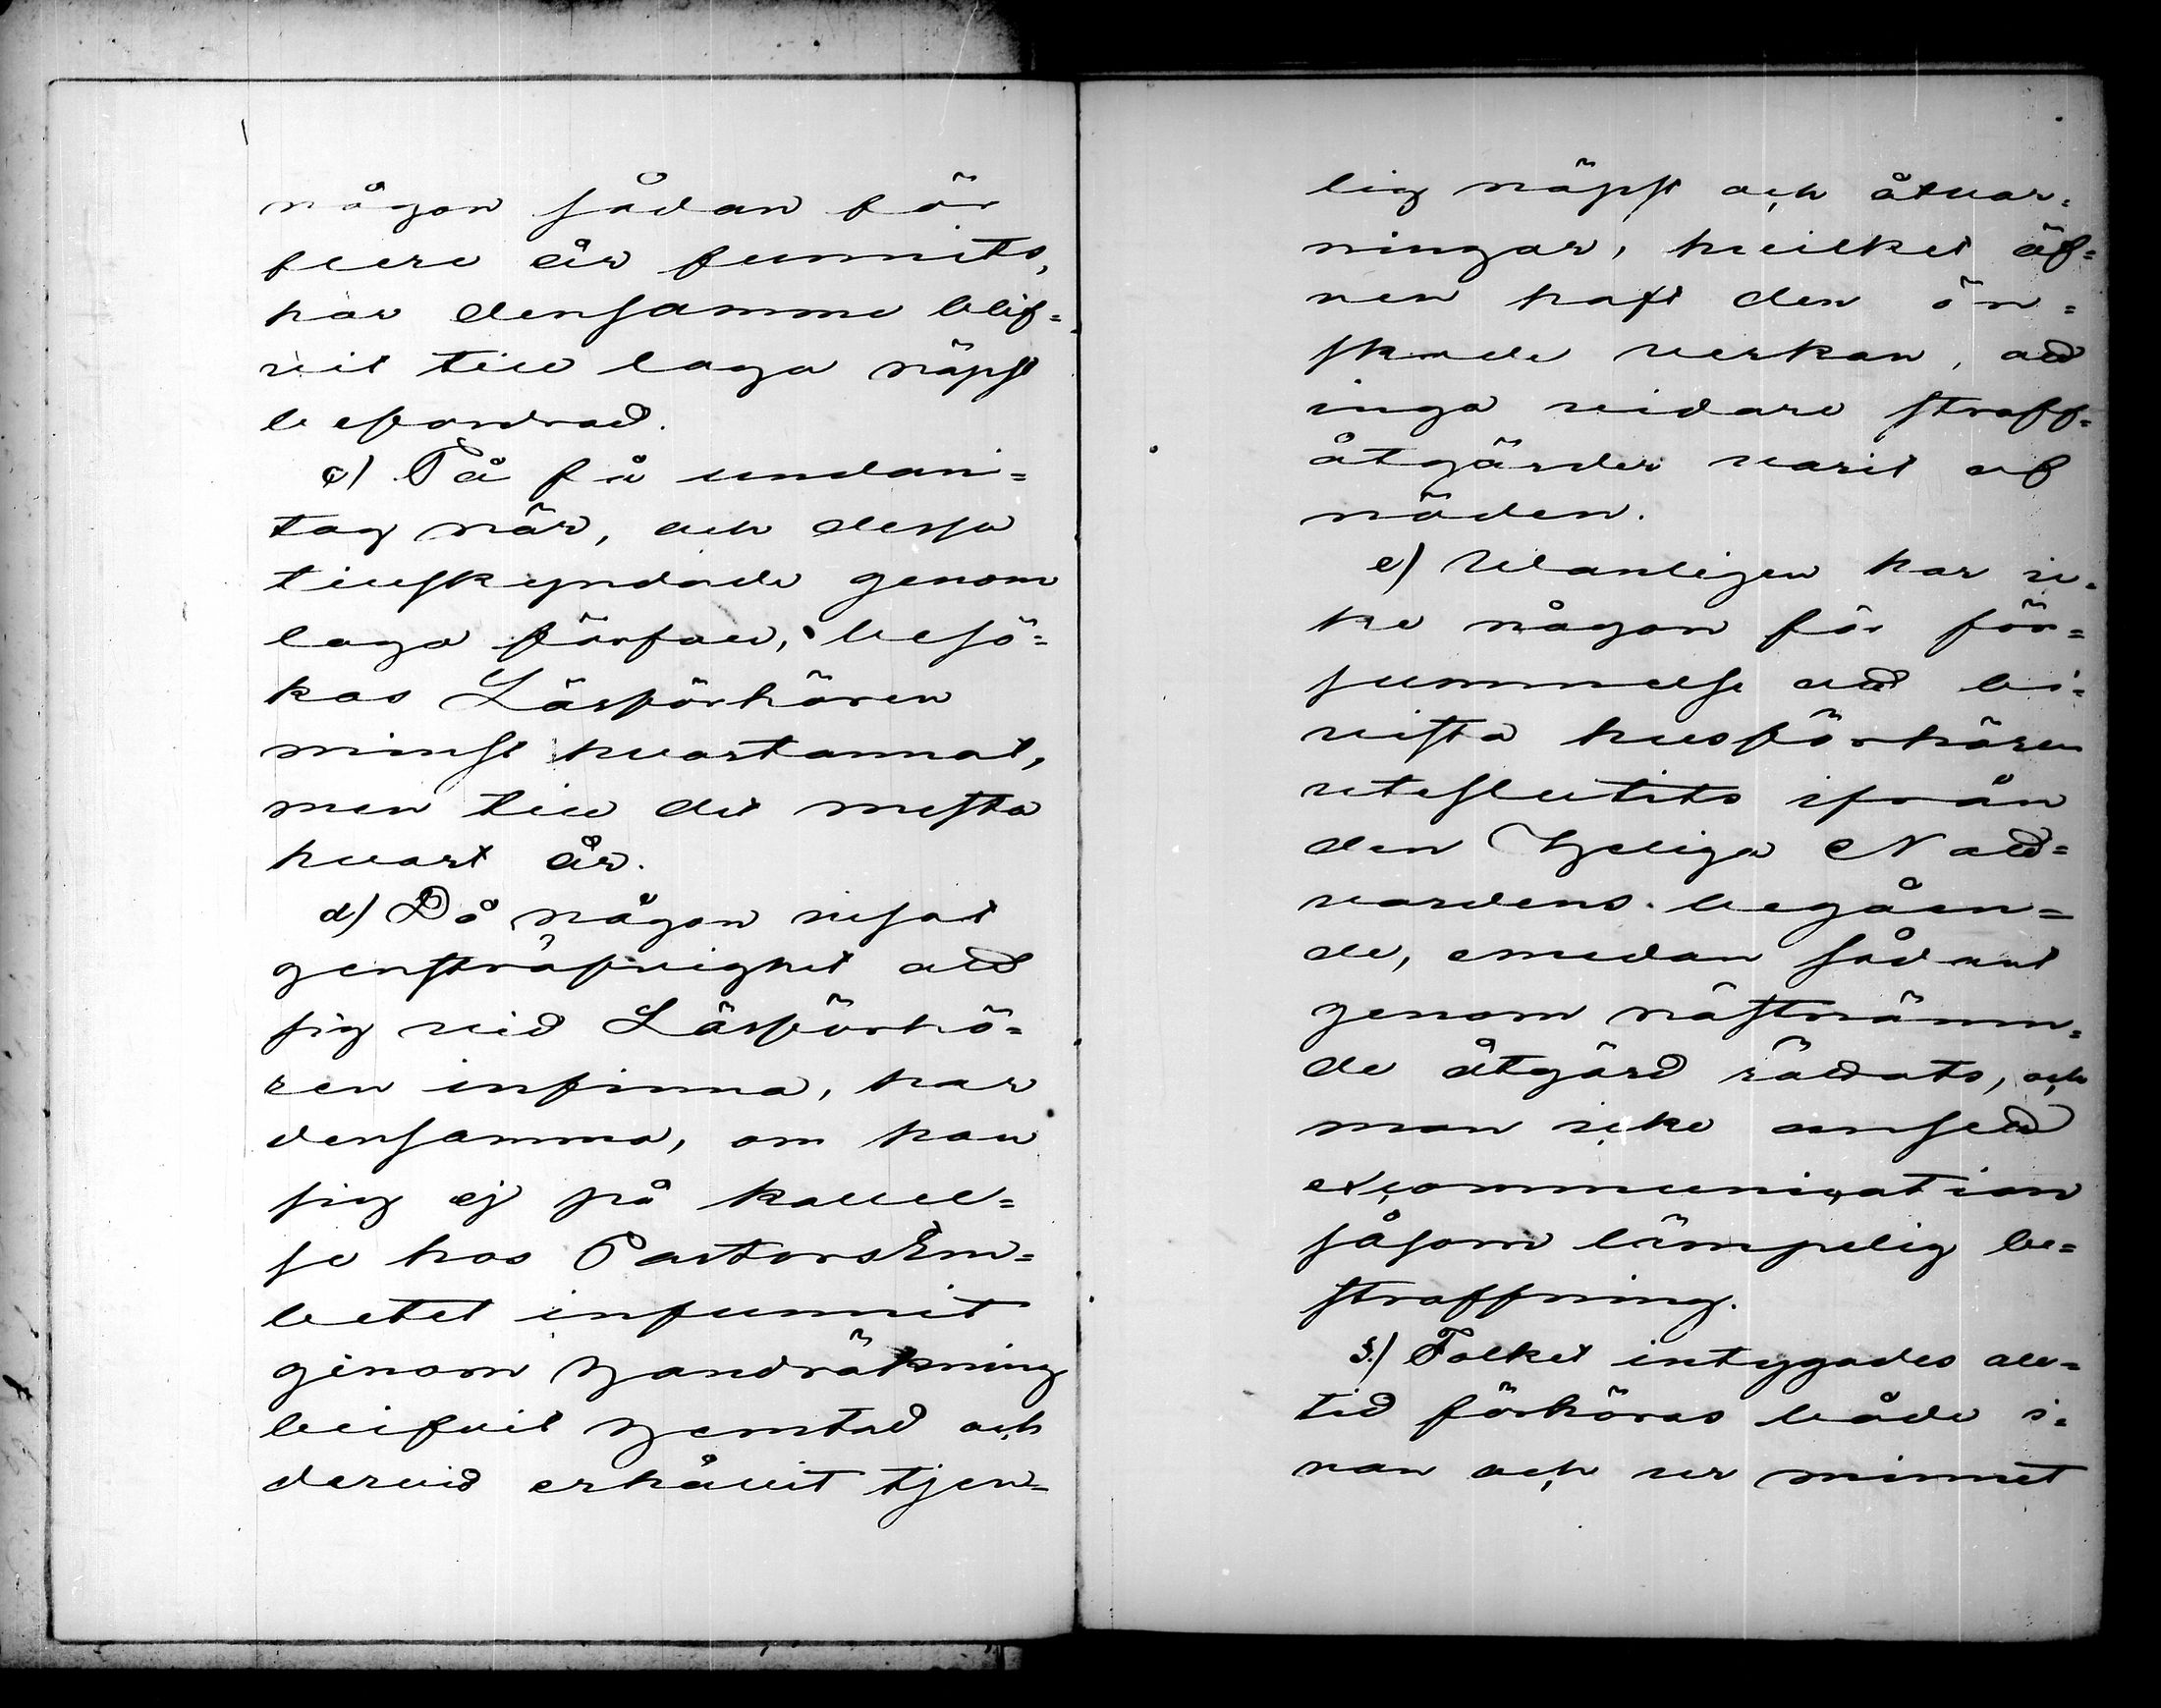 någon sådan för
flere år funnits,
har densamme blif=
vit till laga näpst
befordrad.
c) På få undan=
tag när, och dessa
tillskyndade genom
laga förfall, besö=
kas Läsförhören
minst hvartannat,
men till det mesta
hvart år.
d) Då någon visat
gensträfvighet att
sig vid Läsförhö=
ren infinna, har
densamma, om han
sig ej på kallel=
se hos PastorsEm=
betet infunnit
genom Handräkning
blifvit Hemtad och
dervid erhållit tjen=
lig näpst och åtvar=
ningar, hvilket äf=
ven haft den ön=
skade verkan, att
inga vidare straff=
åtgärder varit af
nöden.
e) Vetanligen har ic=
ke någon för för=
summelse att bi=
vista husförhören
uteslutits ifrån
den Heliga Natt=
vardens begåen=
de, emedan sådant
genom nästnämn=
de åtgärd rättats, och
man icke ansett
excommunication
såsom lämpelig be=
straffning.
3.) Folket intygades all=
tid förhöras både i=
nan och ur minnet